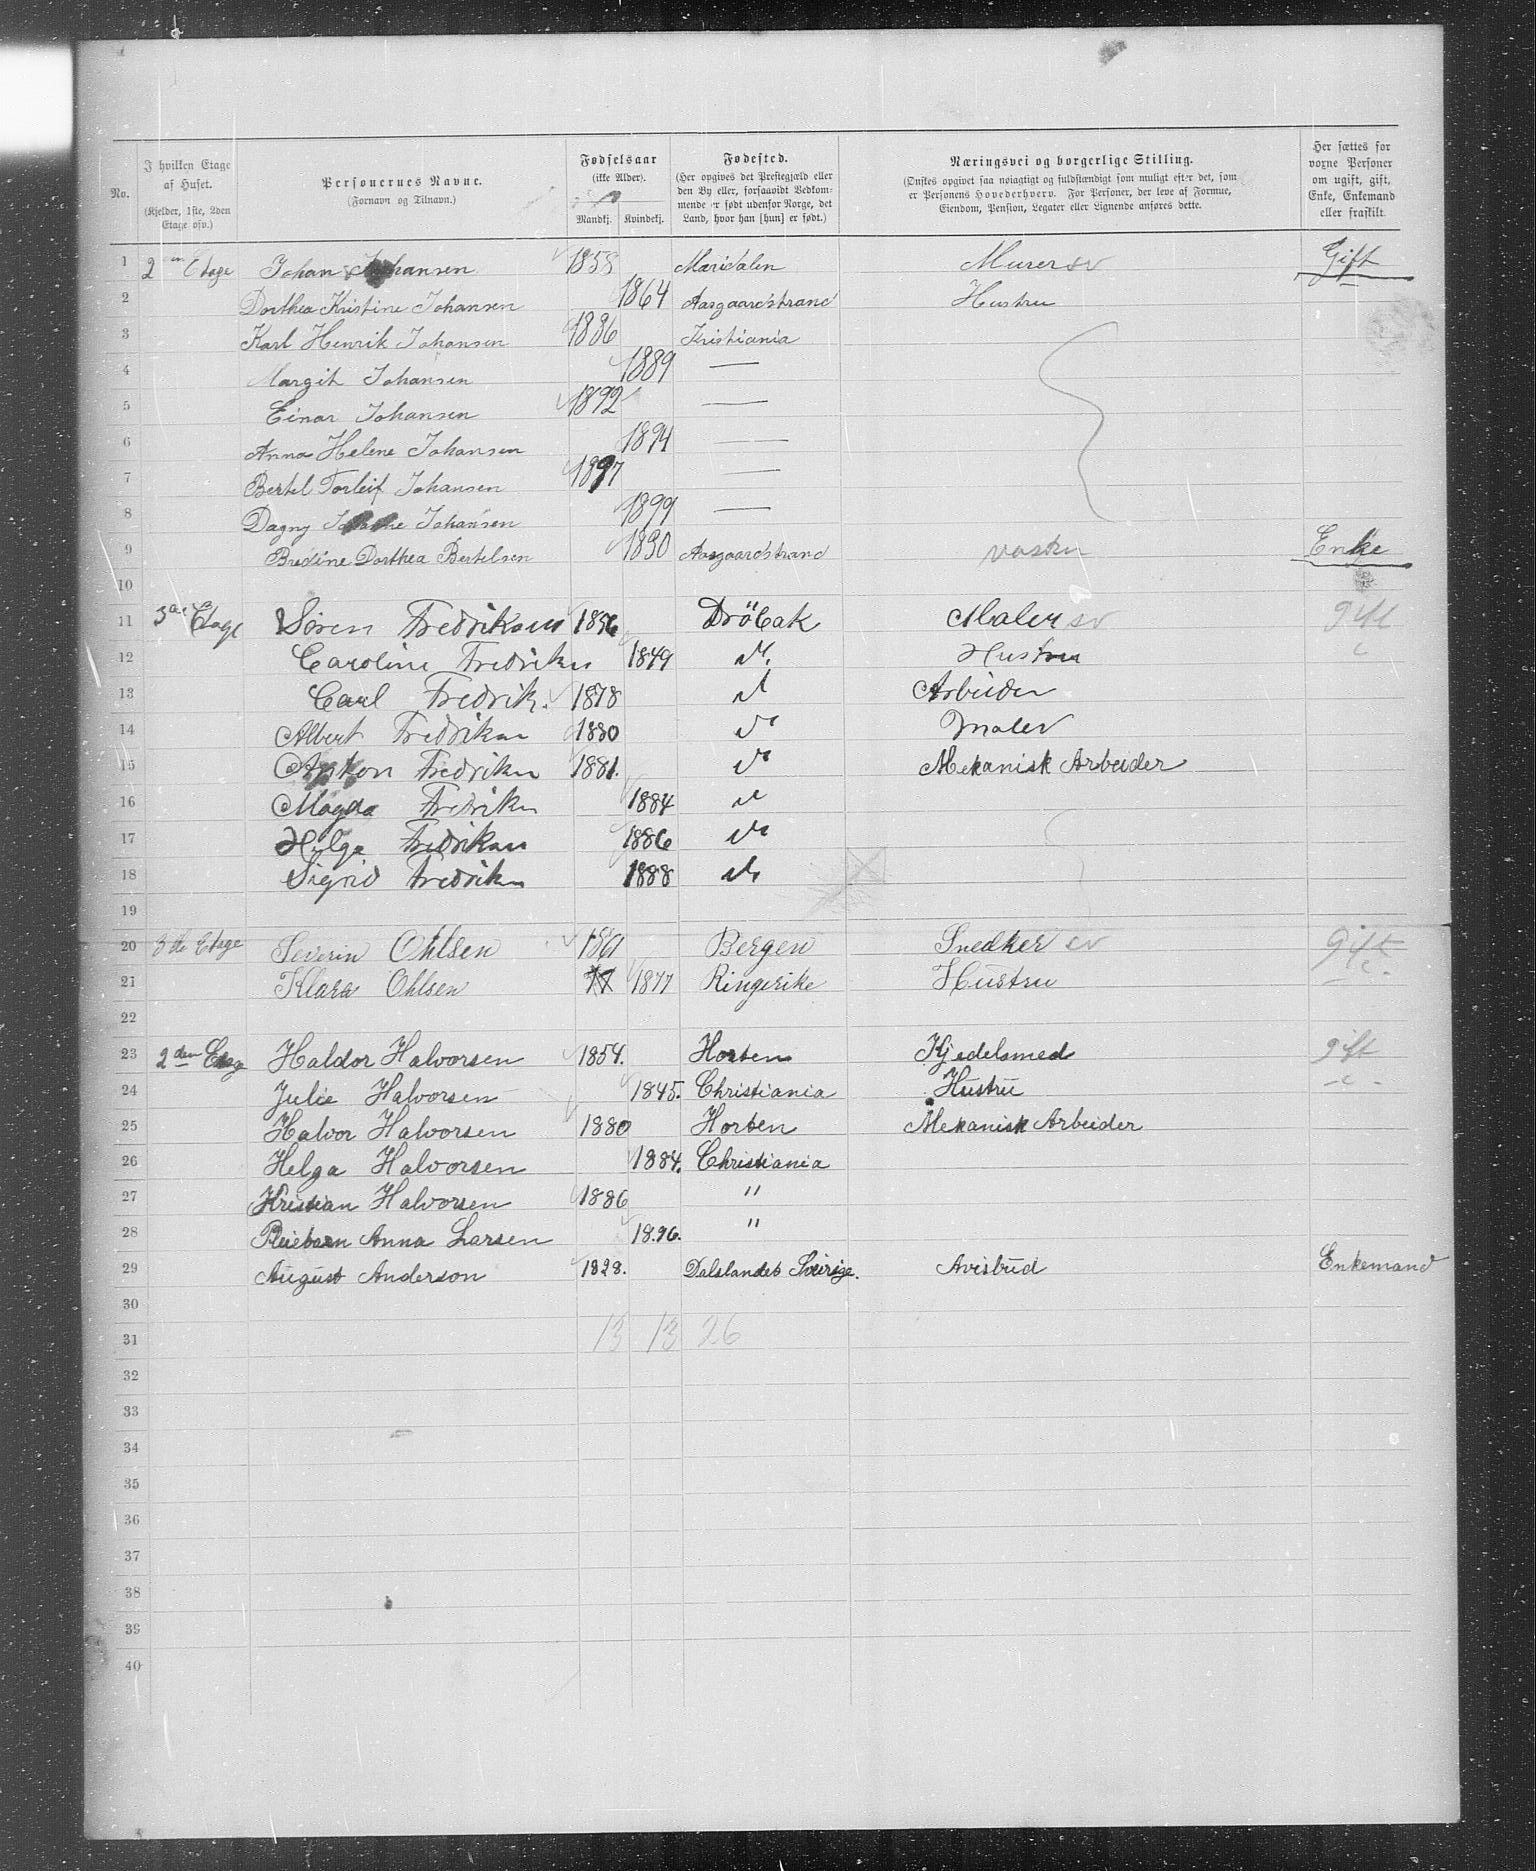 No. | I hvilken Etage af Huset. (Kjelder, 1ste, 2den Etage osv.) | Personernes Navne. (Fornavn og Tilnavn.) | Fødselsaar (ikke Alder). Mandkj. | Kvindekj. | Fødested. (Her opgives det Prestegjæld eller den By eller, forsaavidt Vedkommende er født udenfor Norge, det Land, hvor han [hun] er født.) | Næringsvei og borgerlige Stilling. (Ønskes opgivet saa nøiagtigt og fuldstændigt som muligt efter det, som er Personens Hovederhverv. For Personer, der leve af Formue, Eiendom, Pension, Legater eller Lignende anføres dette. | Her sættes for voxne Personer om ugift, gift, Enke, Enkemand eller fraskilt.
1 2en Etage Johan Johansen 1858 Maridalen Murer sv Gift
2 Dorthea Kristine Johansen 1864 Aasgaardstrand Hustru
3 Karl Henrik Johansen 1886 Kristiania
4 Margit Johansen 1889 —
5 Einar Johansen 1892 —
6 Anna Helene Johansen 1894 —
7 Bertel Torleif Johansen 1897 —
8 Dagny Johansen 1899 —
9 Bredine Dorthea Bertelsen 1830 Aasgaardstrand vasker Enke
10
11 3de Etage Sören Fredriksen 1856 Dröbak Maler sv gift
12 Caroline Fredriksen 1849 do. Hustru
13 Carl Fredrik. 1878 do Arbeider
14 Albert Fredriksen 1880 do Maler
15 Anton Fredriksen 1881. do Mekanisk Arbeider
16 Magda Fredriksen 1884 do
17 Helga Fredriksen 1886 do
18 Sigrid Fredriksen 1888 do
19
20 3de Etage Severin Ohlsen 1861 Bergen Snedker sv gift
21 Klara Ohlsen 1877 Ringerike Hustru
22
23 2den Etage Haldor Halvorsen 1854. Horten Kjedelsmed gift
24 Julie Halvorsen 1845. Christiania Hustru
25 Halvor Halvorsen 1880 Horten Mekanisk Arbeider
26 Helga Halvorsen 1884. Christiania
27 Kristian Halvorsen 1886 "
28 Pleiebarn Anna Larsen 1896. "
29 August Anderson 1828. Dalslandet Sverige. Avisbud Enkemand
30
31 13 13 26
32
33
34
35
36
37
38
39
40